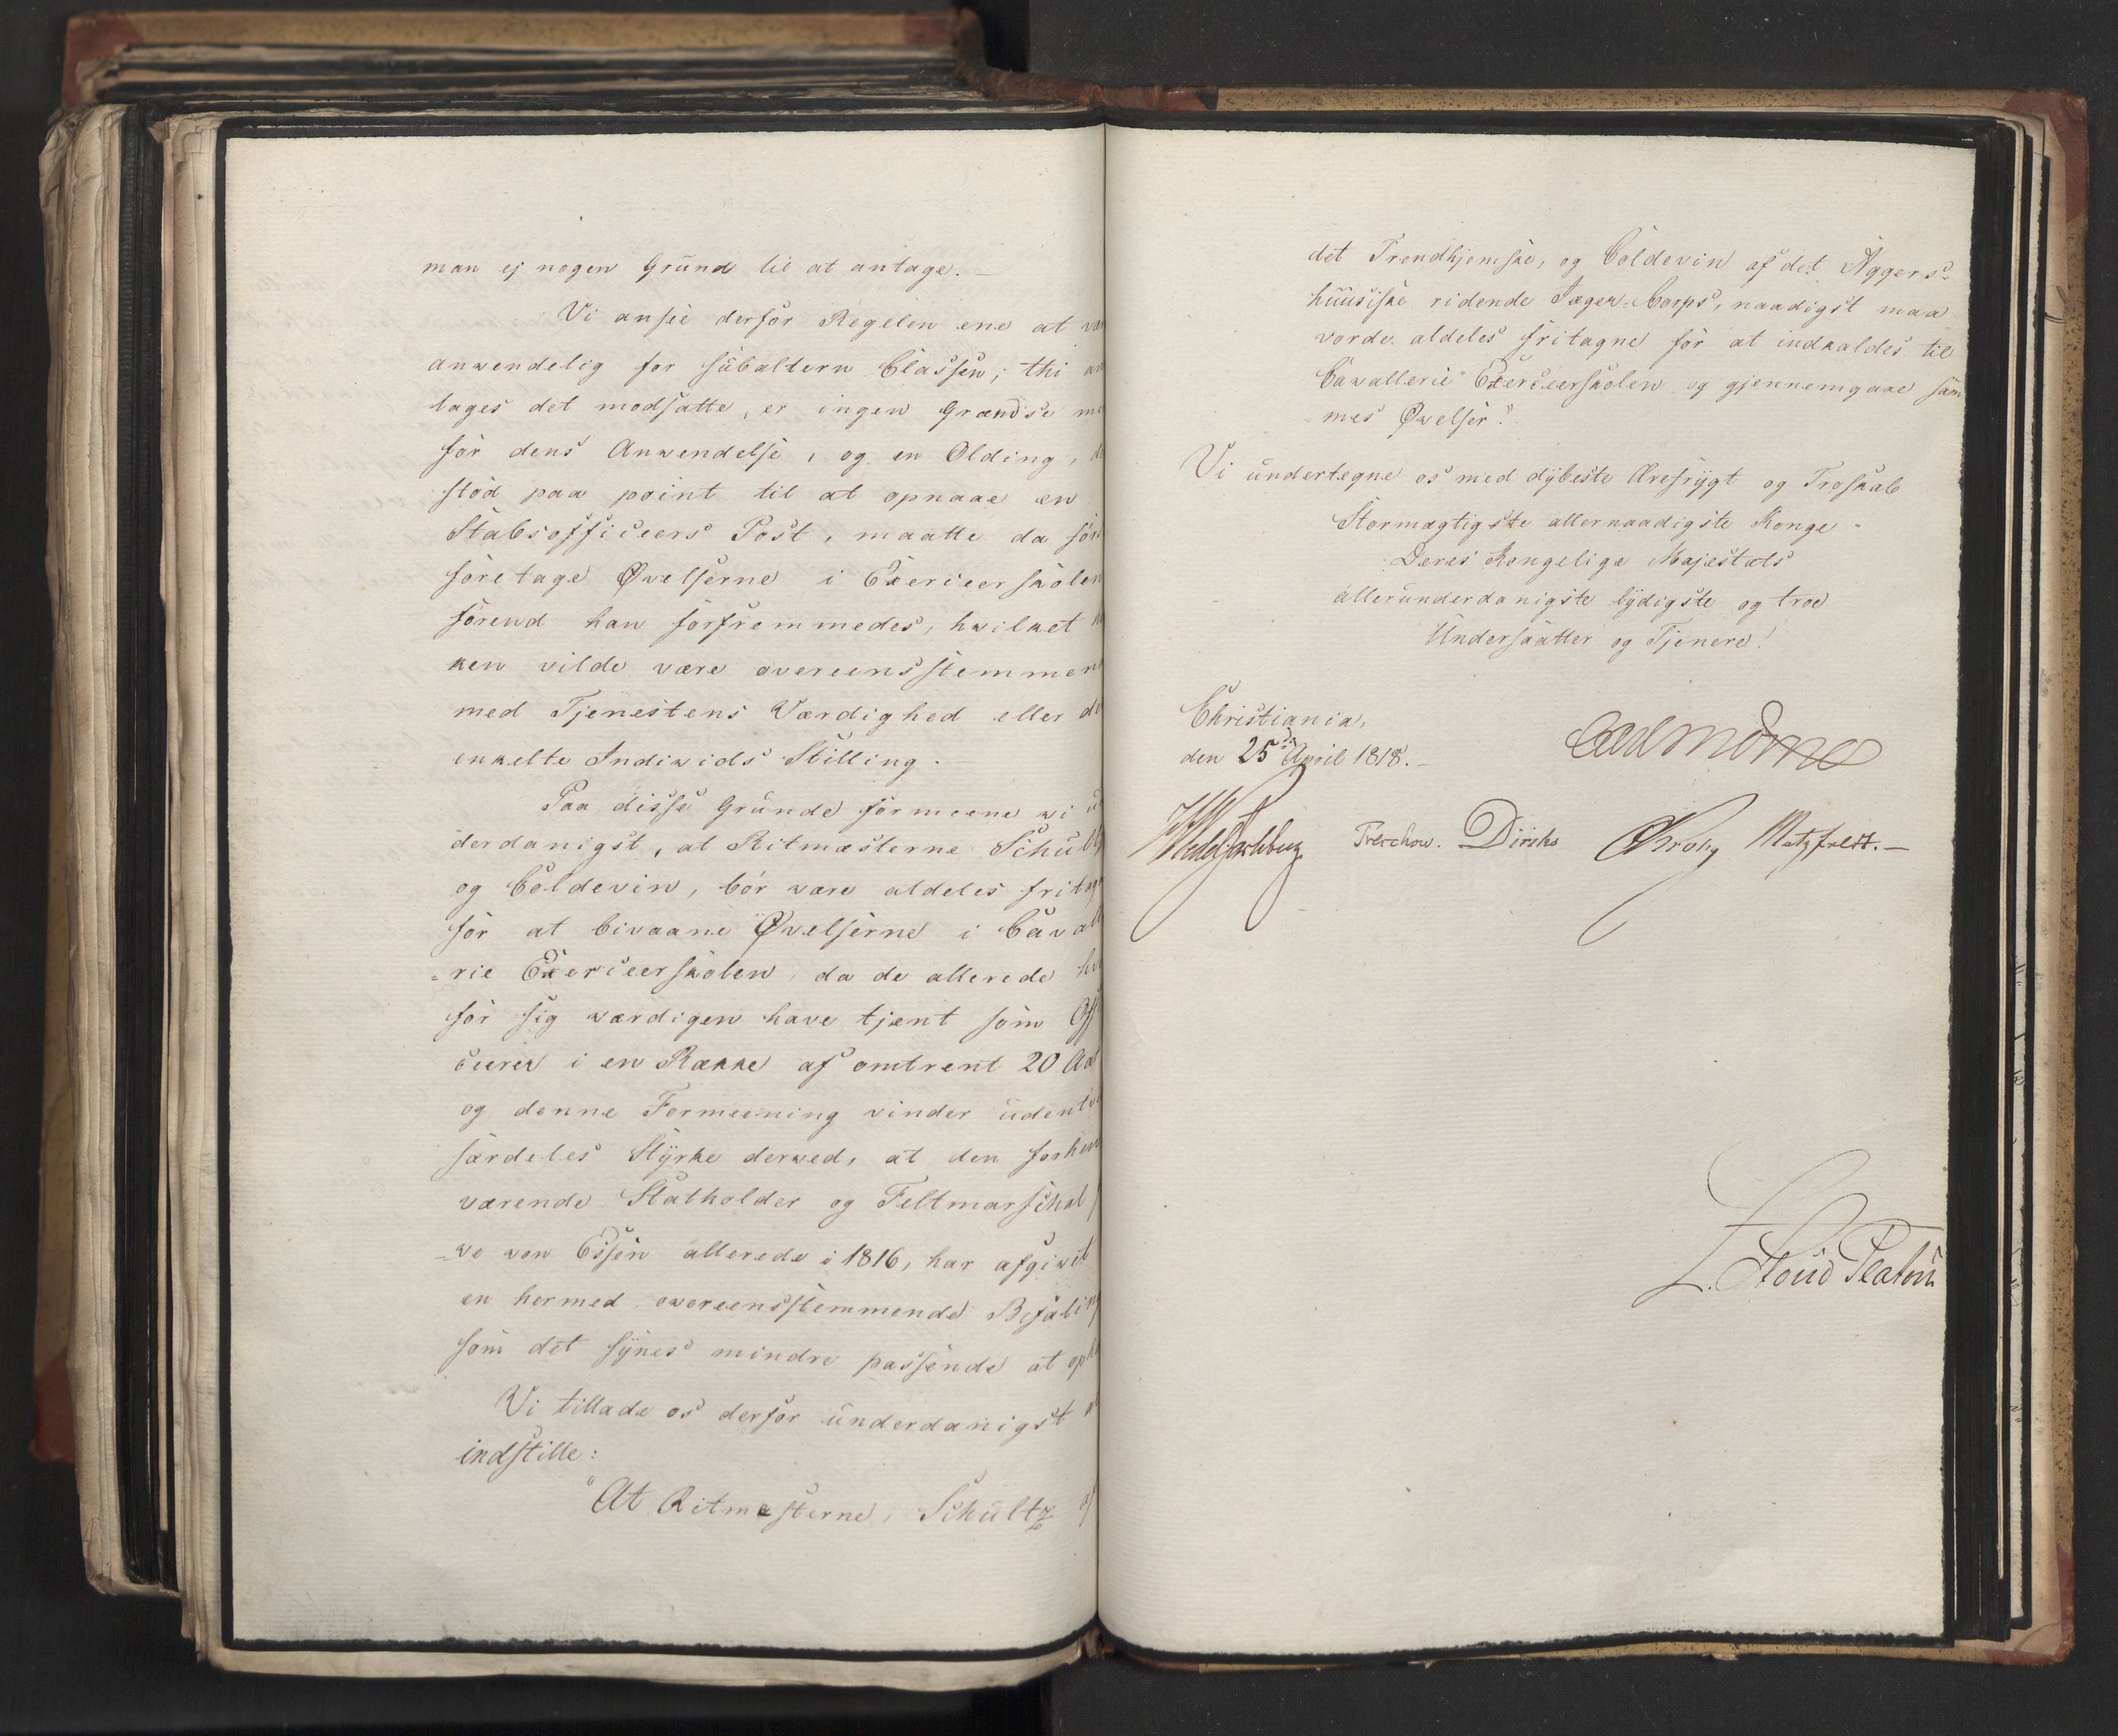 man ej nogen Grund til at antage. —
Vi ansee derfor Regelen ene at
anvendelig for subaltern Classen; thi an
tages det modsatte, er ingen Grændse
for dens Anvendelse, og en Olding,
stod paa point til at opnaae en
Stabsofficeers Post, maatte da
foretage Øvelserne i Exerceerskolen
førend han forfremmedes, hvilket
ken vilde være overeensstemmen
med Tjenestens Værdighed eller
enkelte Individs Stilling.
Paa disse Grunde formeene vi
derdanigst, at Ritmesterne Schultz
og Coldevin, bør være aldeles fritag
for at bivaane Øvelserne i Caval
-rie Exerceerskolen, da de allerede
for sig værdigen have tjent som Offi
ceerer i en Række af omtrent 20 Aar
og denne Formeening vinder udentv
særdeles Styrke derved, at den forhen
værende Statholder og Feltmarschal
-ve von Essen allerede i 1816, har afgivet
en hermed overeensstemmende Befaling
som det synes mindre passende at oph
Vi tillade os derfor underdanigst
indstille:
"At Ritmesterne, Schultz af
det Trondhjemske, og Coldevin af det Aggers-
huusiske ridende Jæger-Corps, naadigst maa
vorde aldeles fritagne for at indkaldes til
Cavallerie Exerceerskolen og gjennemgaae sam
-mes Øvelser."
Vi undertegne os med dybeste Ærefrygt og Troskab
Stormægtigste allernaadigste Konge
Deres Kongelige Majestæts
allerunderdanigste lydigste og troe
Undersaatter og Tjenere!
Christiania,
den 25de April 1818. —
CAdMörner
Treschow. Diriks Krohg Motzfeldt. —
L. Stoud Platou